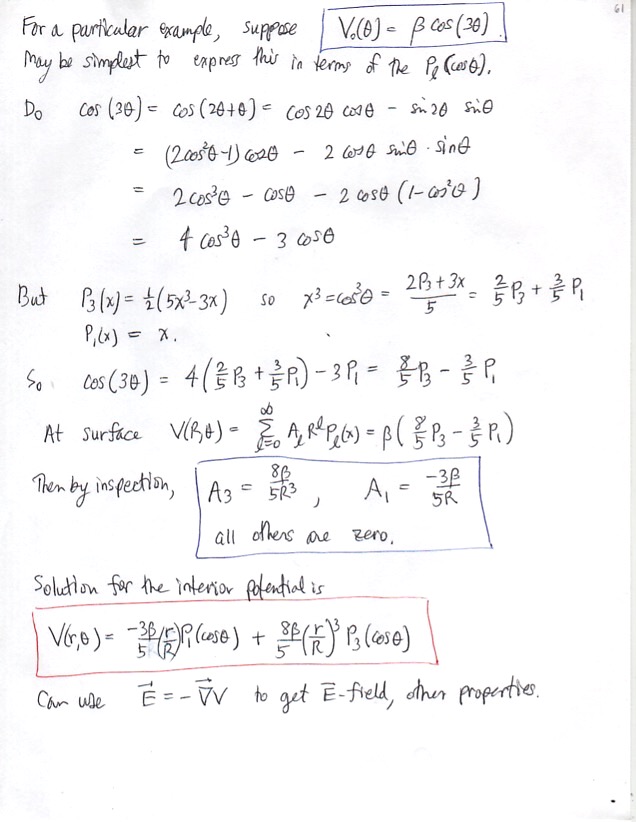 61
For a particular example, suppose V₀(θ) = β cos(3θ).
May be simplest to express this in terms of the Pℓ(cosθ).
Do cos(3θ) = cos(2θ+θ) = cos2θ cosθ − sin2θ sinθ
= (2cos²θ−1) cosθ − 2 cosθ sinθ · sinθ
= 2cos³θ − cosθ − 2 cosθ (1−cos²θ)
= 4 cos³θ − 3 cosθ
But P₃(x) = ½(5x³−3x) so x³ = cos³θ = (2P₃+3x)/5 = 2/5 P₃ + 3/5 P₁
P₁(x) = x.
So cos(3θ) = 4(2/5 P₃ + 3/5 P₁) − 3P₁ = 8/5 P₃ − 3/5 P₁
At surface V(R,θ) = ∑_{ℓ=0}^{∞} Aℓ R^ℓ Pℓ(x) = β(8/5 P₃ − 3/5 P₁)
Then by inspection, A₃ = 8β/5R³, A₁ = −3β/5R
all others are zero.
Solution for the interior potential is
V(r,θ) = −3β/5 (r/R) P₁(cosθ) + 8β/5 (r/R)³ P₃(cosθ)
Can use E⃗ = −∇⃗V to get E⃗-field, other properties.